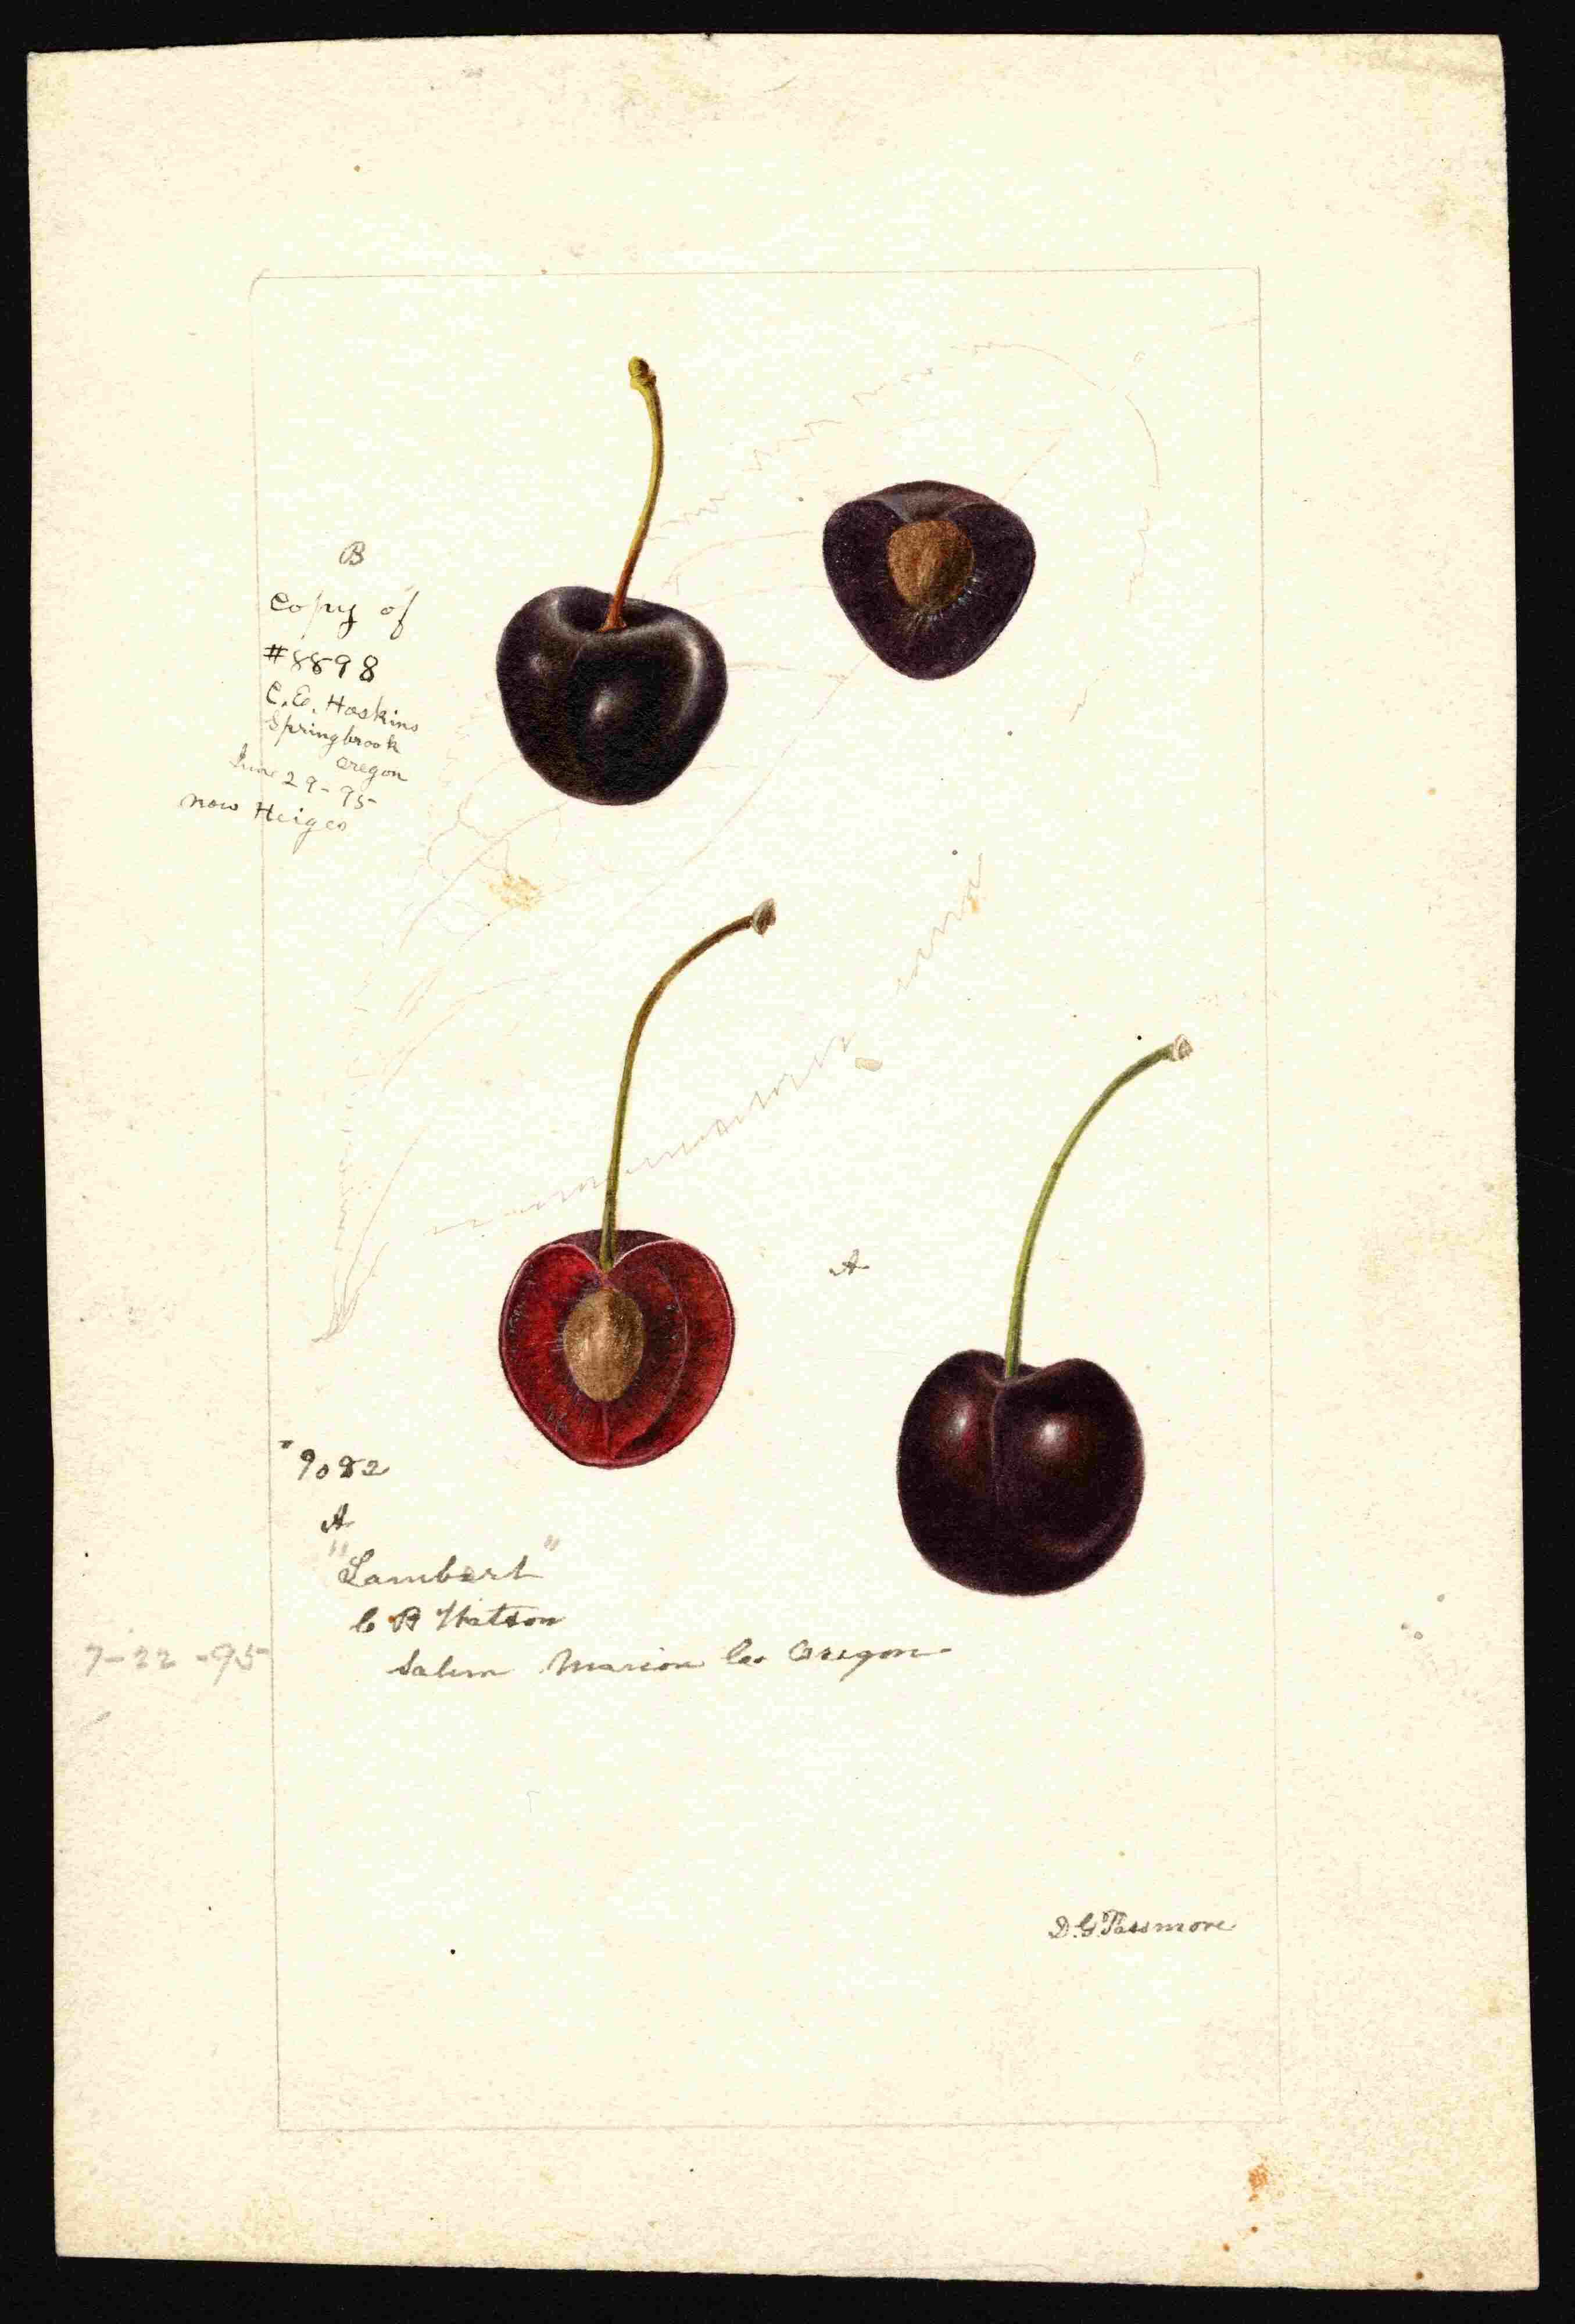 B
Copy of
#8898
C.E. Hoskins
Springbrook
Oregon
June 29-95
now Heiges
A
"9082
A
"Lambert"
C B Watson
7-22-95
Salem Marion Co Oregon
D.G. Passmore